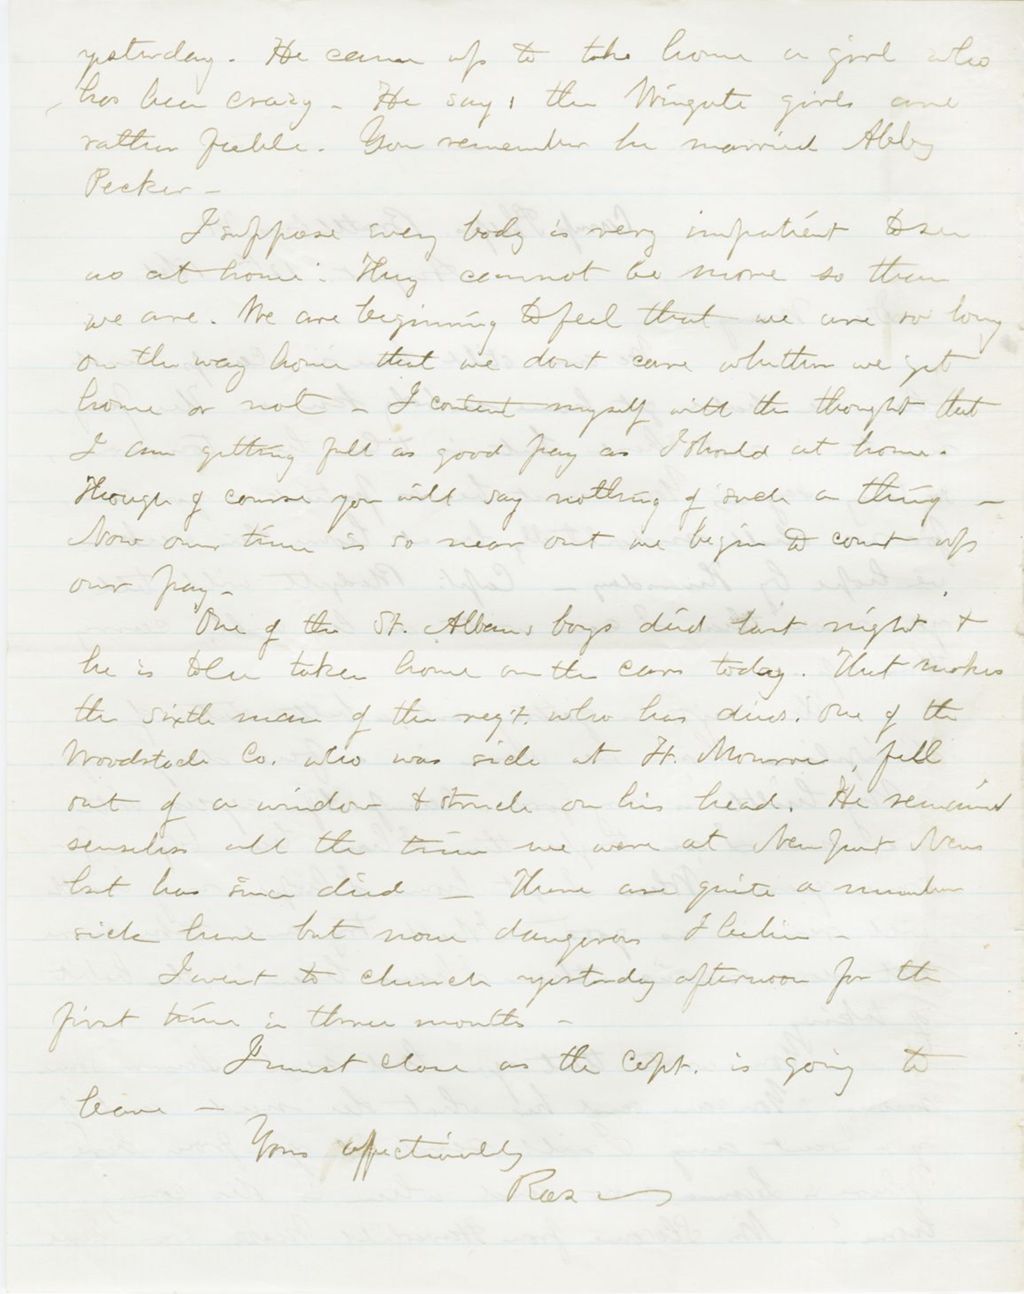 yesterday. He came up to take home a girl who
has been crazy – He says the Wingate girls are
rather feeble. You remember he married Abby
Pecker –
I suppose every body is very impatient to see
us at home. They cannot be more so than
we are. We are beginning to feel that we are so long
on the way home that we dont care whether we get
home or not – I content myself with the thought that
I am getting full as good pay as I should at home.
Though of course you will say nothing of such a thing –
Now our time is so near out we begin to count up
our pay –
One of the St. Albans boys died last night &
he is to be taken home on the cars today. That makes
the sixth man of the reg't. who has died. One of the
Woodstock Co. who was sick at Ft. Monroe, fell
out of a window & struck on his head. He remained
senseless all the time we were at Newport News
but has since died – There are quite a number
sick here but none dangerous I believe –
I went to church yesterday afternoon for the
first time in three months –
I must close as the Capt. is going to
leave –
Yours affectionately